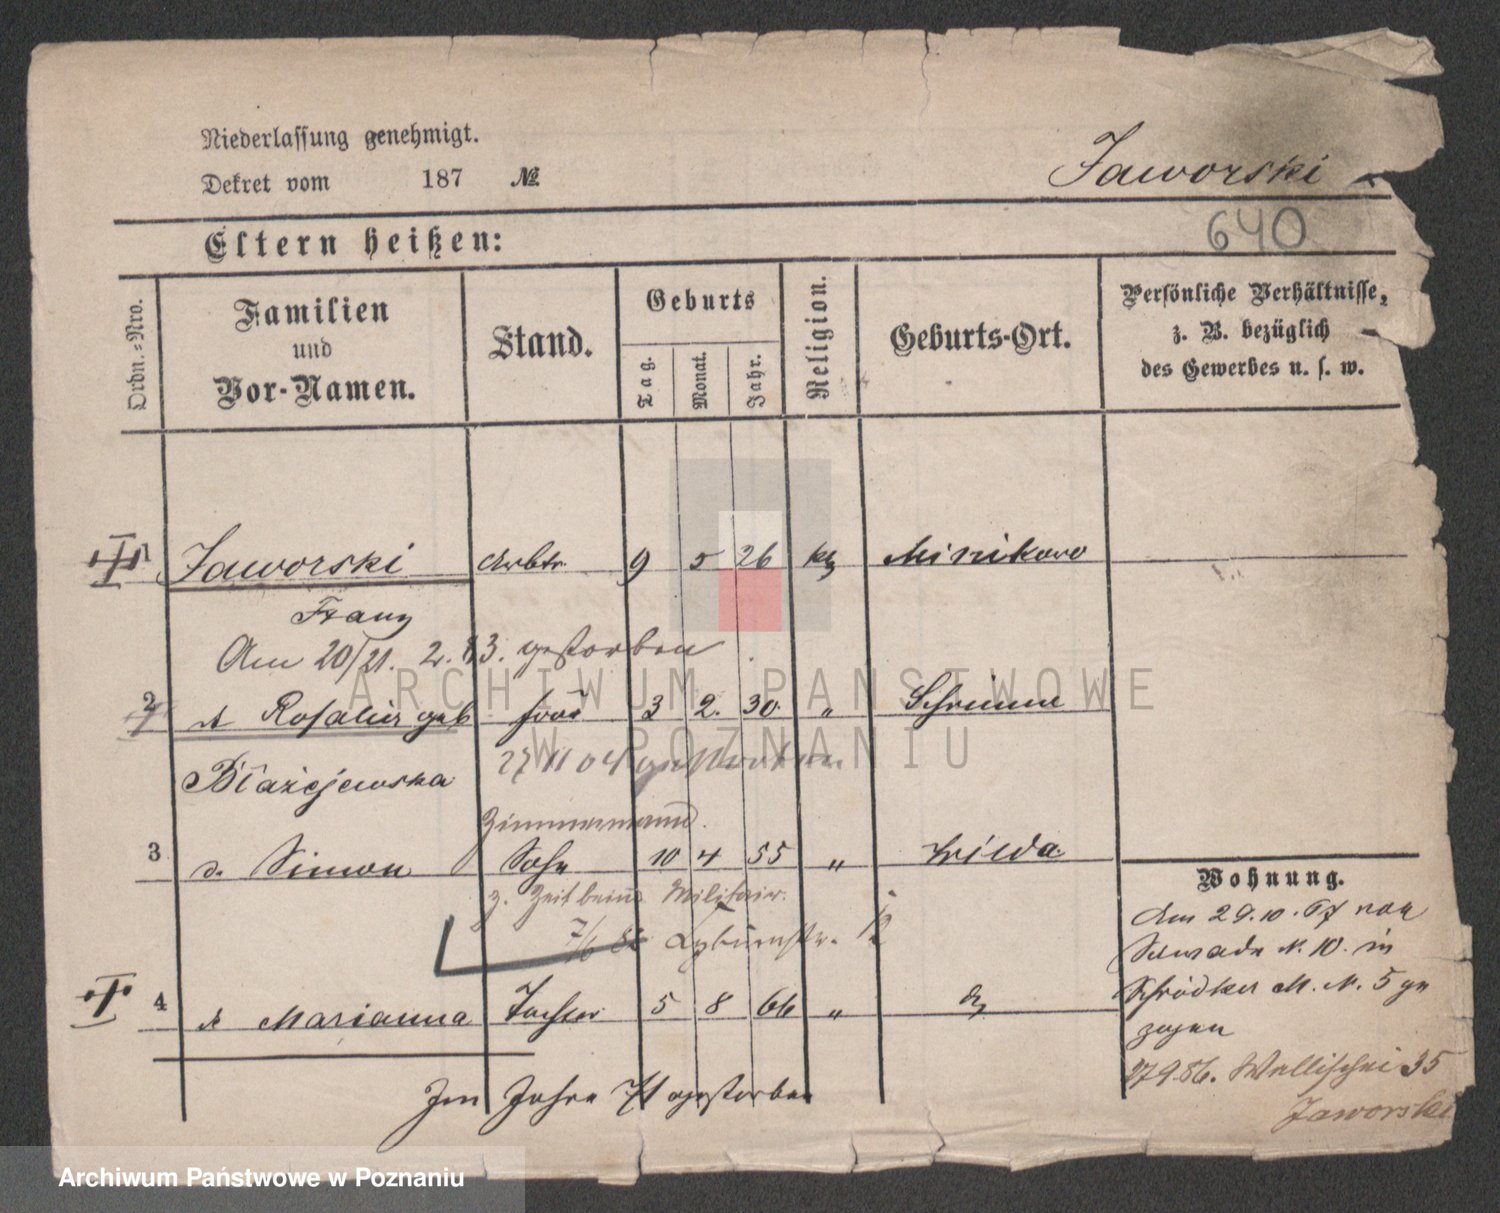 Niederlassung genehmigt.
Dekret vom 187 №
Jaworski
640
Eltern heißen:
Ordn.-Nro.
Familien und Vor-Namen.
Stand.
Geburts
Tag.
Monat.
Jahr.
Religion.
Geburts-Ort.
Persönliche Verhältnisse, z. B. bezüglich des Gewerbes u. s. w.
1 Jaworski Arbtr. 9 5 26 kth Minikowo
Franz
Am 20/21. 2. 83. gestorben
2 Rosalie geb Frau 3 2. 30. " Schrimm
Błażejewska 27 11 04 gestorben
Zimmermann.
3 d. Simon Sohn 10 4 55 " Wilda
z. Zeit beim Militair.
7/6 82
4 Marianna Tochter 5 8 66 "
Im Jahre 71 gestorben
Wohnung.
Am 29.10.67 von
N. 10. in
Schrodker M. N. 5 ge
zogen
27.9.86. Wallischei 35
Jaworski
ARCHIWUM PAŃSTWOWE
W POZNANIU
Archiwum Państwowe w Poznaniu